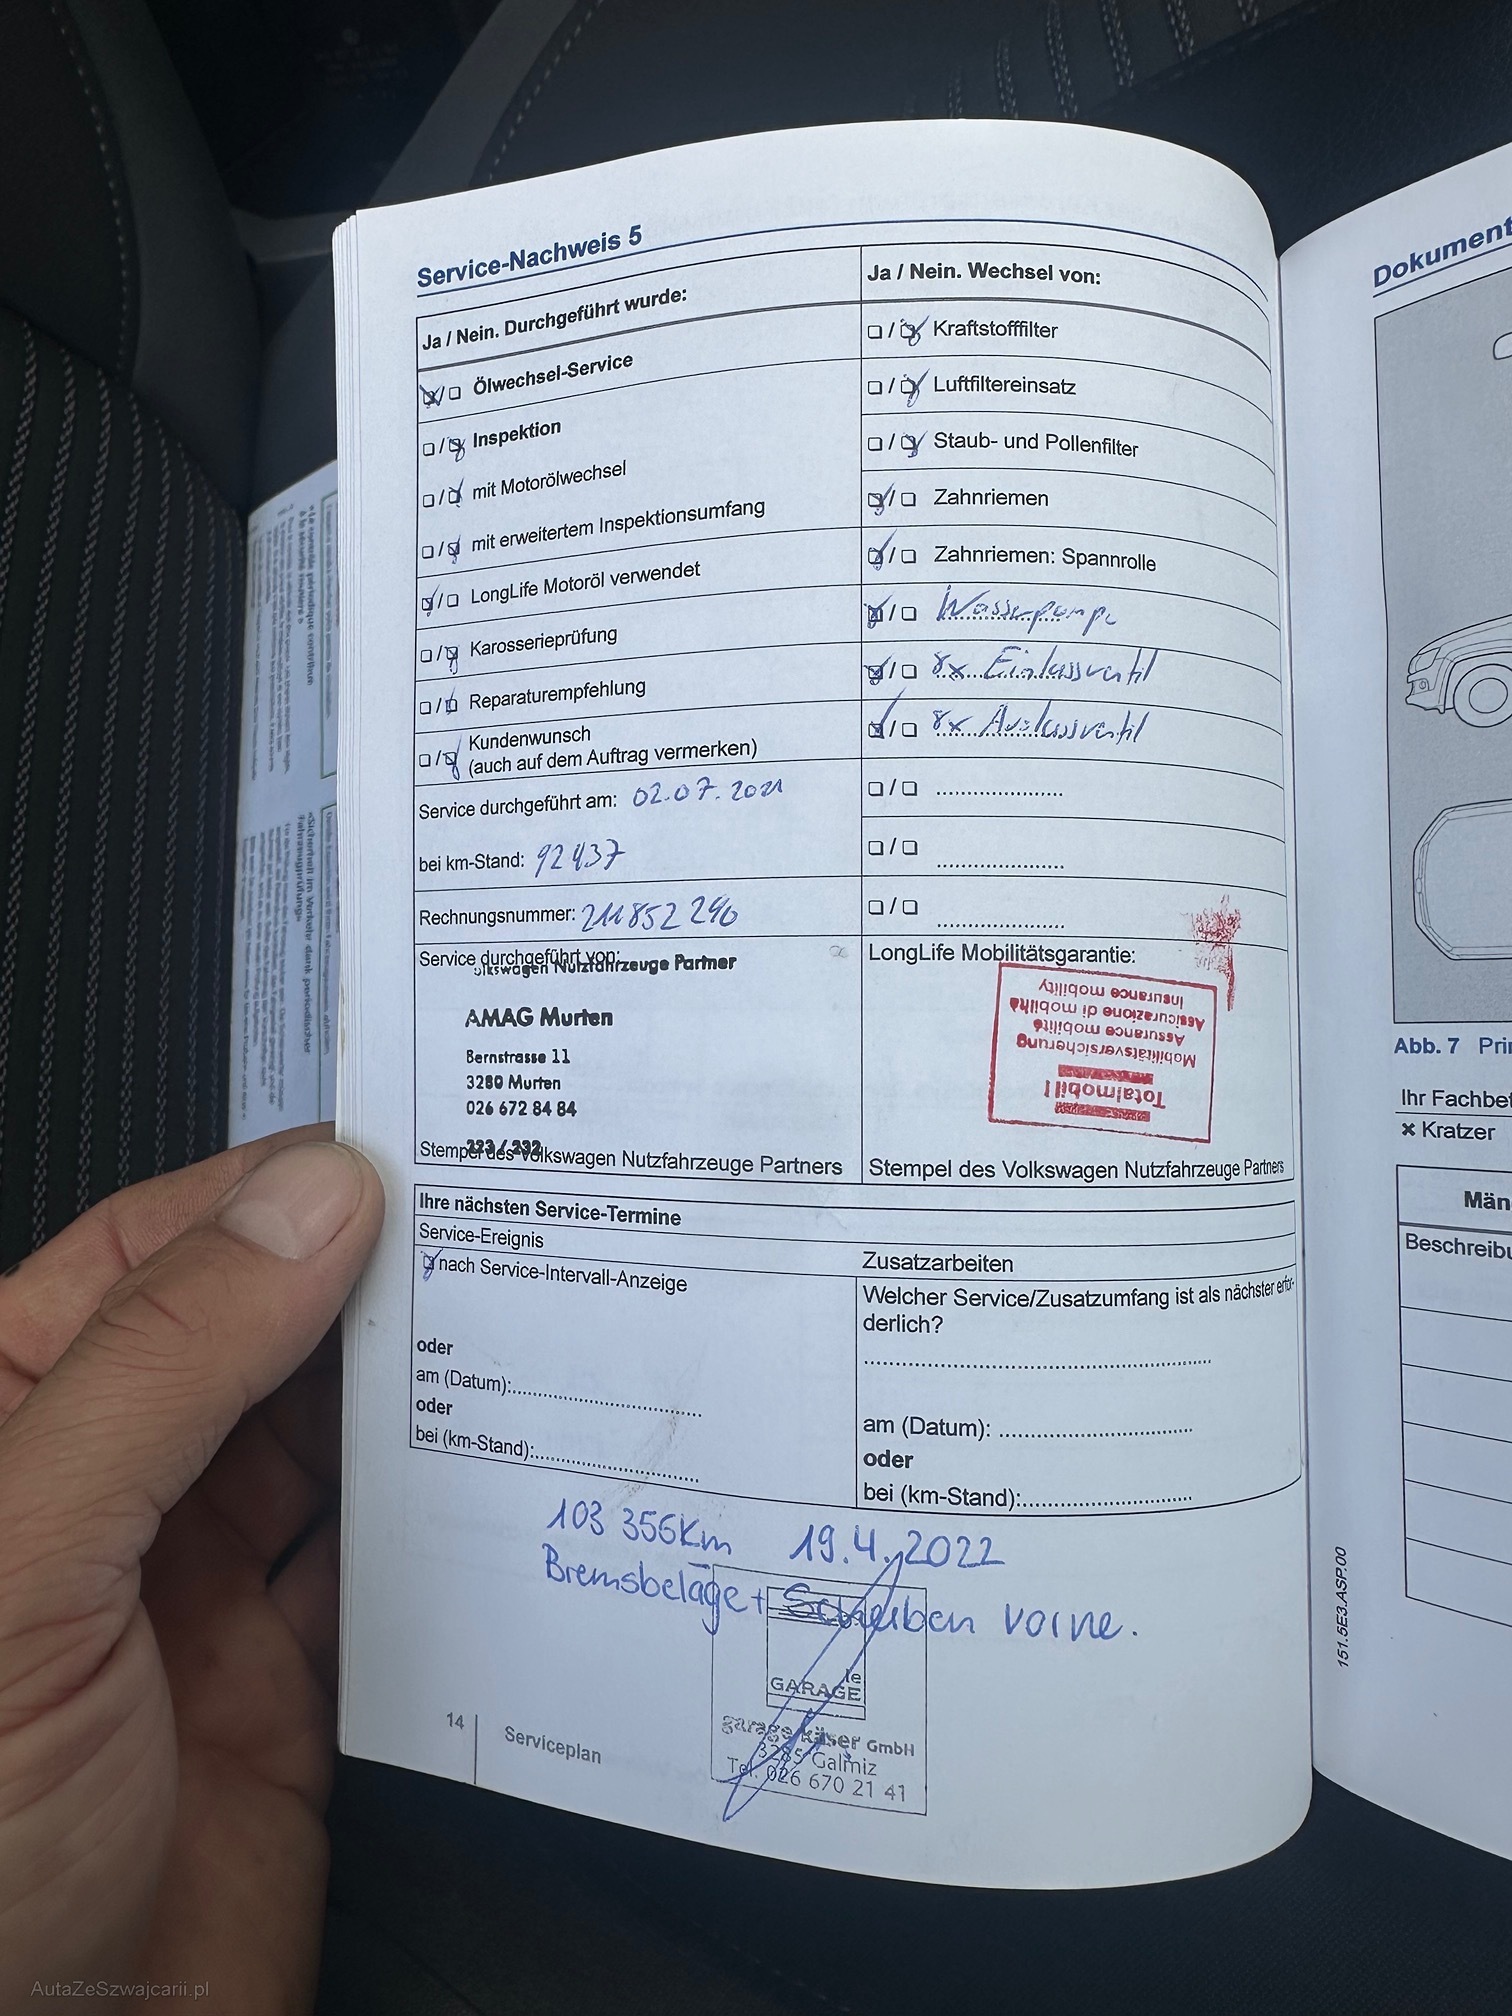 Service-Nachweis 5
Ja / Nein. Durchgeführt wurde:
Ölwechsel-Service
Inspektion
mit Motorölwechsel
mit erweitertem Inspektionsumfang
LongLife Motoröl verwendet
Karosserieprüfung
Reparaturempfehlung
Kundenwunsch
(auch auf dem Auftrag vermerken)
Service durchgeführt am: 02.07.2021
bei km-Stand: 92437
Rechnungsnummer: 211852290
Service durchgeführt von:
Volkswagen Nutzfahrzeuge Partner
AMAG Murten
Bernstrasse 11
3280 Murten
026 672 84 84
223 / 232
Stempel des Volkswagen Nutzfahrzeuge Partners
Ja / Nein. Wechsel von:
Kraftstofffilter
Luftfiltereinsatz
Staub- und Pollenfilter
Zahnriemen
Zahnriemen: Spannrolle
Wasserpumpe
8x Einlassventil
8x Auslassventil
LongLife Mobilitätsgarantie:
Totalmobil!
Mobilitätsversicherung
Assurance mobilité
Assicurazione di mobilità
Insurance mobility
Stempel des Volkswagen Nutzfahrzeuge Partners
Ihre nächsten Service-Termine
Service-Ereignis
nach Service-Intervall-Anzeige
oder
am (Datum):
oder
bei (km-Stand):
Zusatzarbeiten
Welcher Service/Zusatzumfang ist als nächster erfor-
derlich?
am (Datum):
oder
bei (km-Stand):
103 356Km 19.4.2022
Bremsbeläge + Scheiben vorne.
le
GARAGE
garage käser GmbH
3285 Galmiz
Tel. 026 670 21 41
14 Serviceplan
Dokument
Abb. 7
Ihr Fachbet
× Kratzer
Män
Beschreibu
151.5E3.ASP.00
AutaZeSzwajcarii.pl